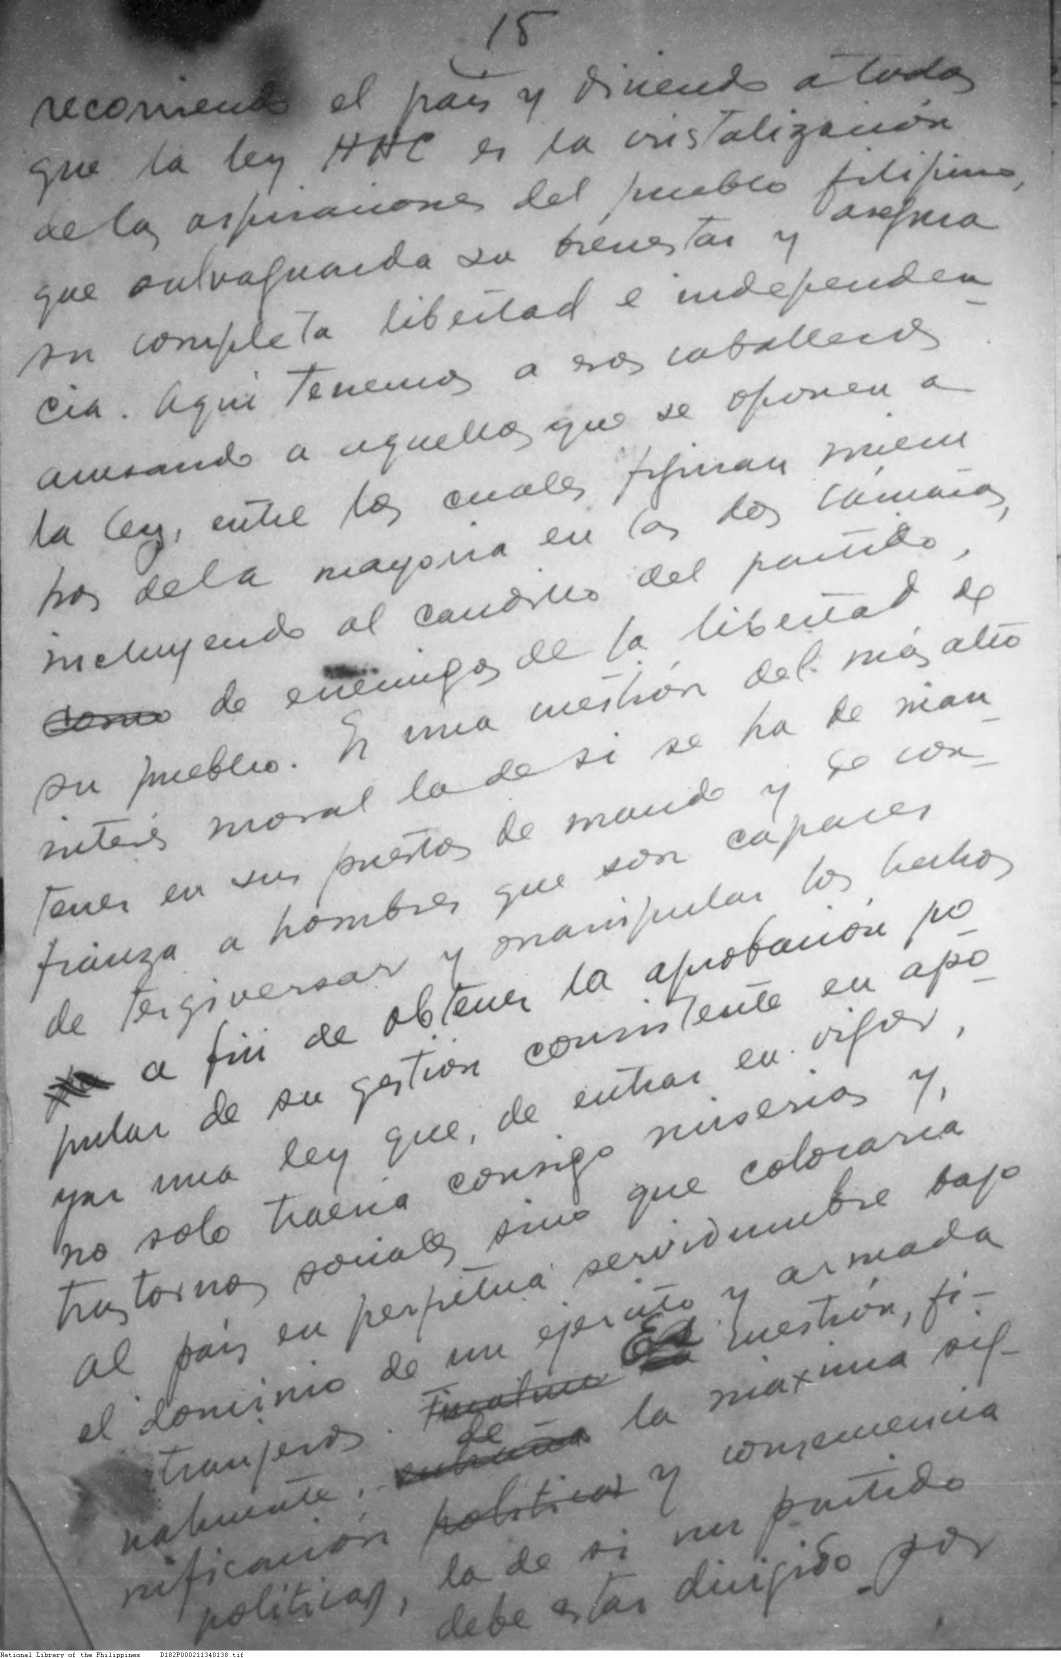 15
recorriendo el país y diciendo a todos
que la ley HHC es la cristalización
de las aspiraciones del pueblo filipino,
que salvaguarda su bienestar y asegura
su completa libertad e independen-
cia. Aquí tenemos a esos caballeros
acusando a aquellos que se oponen a
la ley, entre los cuales figuran miem
bros de la mayoria en las dos Cámaras,
incluyendo al caudillo del partido,
como de enemigos de la libertad de
su pueblo. Es una cuestión del más alto
interés moral la de si se ha de man-
tener en sus puestos de mando y de con-
fianza a hombres que son capaces
de tergiversar y manipular los hechos
a fin de obtener la aprobación po
pular de su gestión consistente en apo-
yar una ley que, de entrar en vigor,
no solo traeria consigo miserias y,
trastornos sociales sino que colocaria
al país en perpetua servidumbre bajo
el dominio de un ejercito y armada
tranjeros. Finalmente Es cuestión, fi-
nalmente, entraña de la máxima sig-
nificación política y consecuencia
políticas, la de si un partido
debe estar dirigido por
National Library of the Philippines D182P000211340138.tif